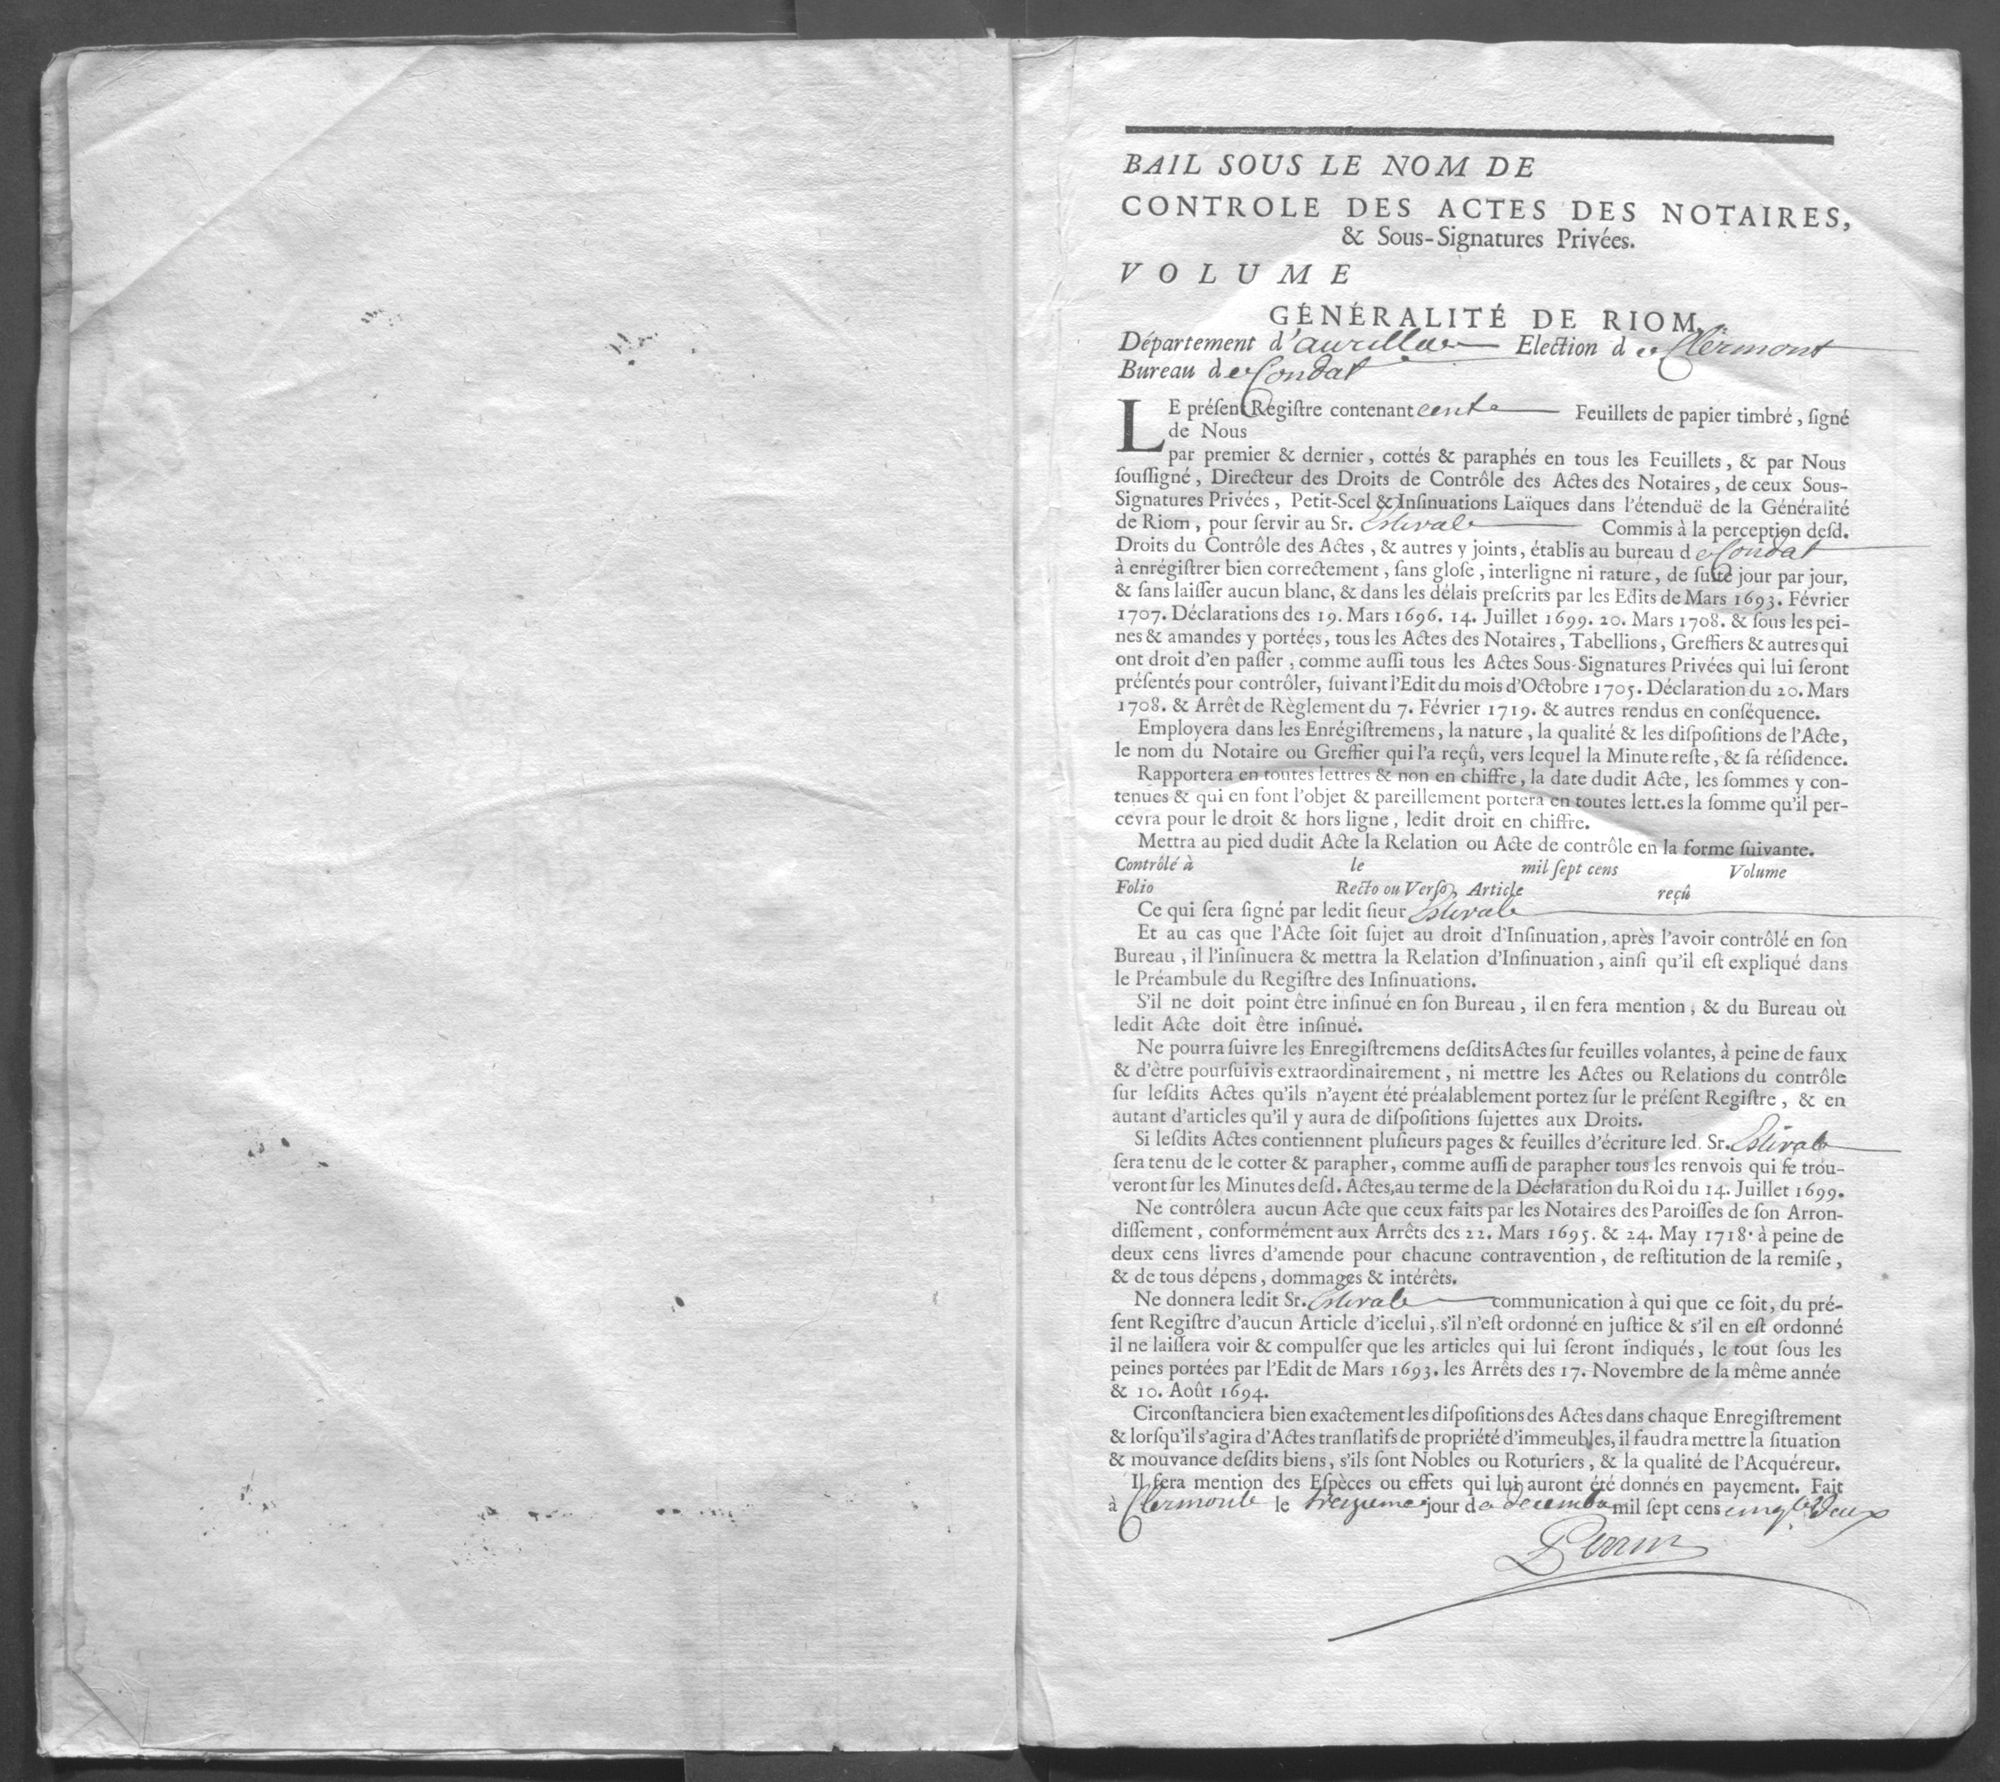 BAIL SOUS LE NOM DE
CONTROLE DES ACTES DES NOTAIRES,
& Sous-Signatures Privées.
VOLUME
GÉNÉRALITÉ DE RIOM.
Département d'aurillac Election de Clermont
Bureau de Condat
LE préſent Regiſtre contenant cent Feuillets de papier timbré, ſigné
de Nous
par premier & dernier, cottés & paraphés en tous les Feuillets, & par Nous
ſouſſigné, Directeur des Droits de Contrôle des Actes des Notaires, de ceux Sous-
Signatures Privées, Petit-Scel & Inſinuations Laïques dans l'étenduë de la Généralité
de Riom, pour ſervir au Sr. Estivale Commis à la perception deſd.
Droits du Contrôle des Actes, & autres y joints, établis au bureau de Condat
à enrégiſtrer bien correctement, ſans gloſe, interligne ni rature, de ſuite jour par jour,
& ſans laiſſer aucun blanc, & dans les délais preſcrits par les Edits de Mars 1693. Février
1707. Déclarations des 19. Mars 1696. 14. Juillet 1699. 20. Mars 1708. & ſous les pei-
nes & amandes y portées, tous les Actes des Notaires, Tabellions, Greffiers & autres qui
ont droit d'en paſſer, comme auſſi tous les Actes Sous-Signatures Privées qui lui ſeront
préſentés pour contrôler, ſuivant l'Edit du mois d'Octobre 1705. Déclaration du 20. Mars
1708. & Arrêt de Règlement du 7. Février 1719. & autres rendus en conſéquence.
Employera dans les Enrégiſtremens, la nature, la qualité & les diſpoſitions de l'Acte,
le nom du Notaire ou Greffier qui l'a reçû, vers lequel la Minute reſte, & ſa réſidence.
Rapportera en toutes lettres & non en chiffre, la date dudit Acte, les ſommes y con-
tenues & qui en font l'objet & pareillement portera en toutes lett.es la ſomme qu'il per-
cevra pour le droit & hors ligne, ledit droit en chiffre.
Mettra au pied dudit Acte la Relation ou Acte de contrôle en la forme ſuivante.
Contrôlé à le mil ſept cens Volume
Folio Recto ou Verſo, Article reçû
Ce qui ſera ſigné par ledit ſieur Estivale
Et au cas que l'Acte ſoit ſujet au droit d'Inſinuation, après l'avoir contrôlé en ſon
Bureau, il l'inſinuera & mettra la Relation d'Inſinuation, ainſi qu'il eſt expliqué dans
le Préambule du Regiſtre des Inſinuations.
S'il ne doit point être inſinué en ſon Bureau, il en fera mention, & du Bureau où
ledit Acte doit être inſinué.
Ne pourra ſuivre les Enregiſtremens deſdits Actes ſur feuilles volantes, à peine de faux
& d'être pourſuivis extraordinairement, ni mettre les Actes ou Relations du contrôle
ſur leſdits Actes qu'ils n'ayent été préalablement portez ſur le préſent Regiſtre, & en
autant d'articles qu'il y aura de diſpoſitions ſujettes aux Droits.
Si leſdits Actes contiennent pluſieurs pages & feuilles d'écriture led. Sr. Estivale
ſera tenu de le cotter & parapher, comme auſſi de parapher tous les renvois qui ſe trou-
veront ſur les Minutes deſd. Actes, au terme de la Déclaration du Roi du 14. Juillet 1699.
Ne contrôlera aucun Acte que ceux faits par les Notaires des Paroiſſes de ſon Arron-
diſſement, conformément aux Arrêts des 22. Mars 1695. & 24. May 1718. à peine de
deux cens livres d'amende pour chacune contravention, de reſtitution de la remiſe,
& de tous dépens, dommages & intérêts.
Ne donnera ledit Sr. Estivale communication à qui que ce ſoit, du pré-
ſent Regiſtre d'aucun Article d'icelui, s'il n'eſt ordonné en juſtice & s'il en eſt ordonné
il ne laiſſera voir & compulſer que les articles qui lui ſeront indiqués, le tout ſous les
peines portées par l'Edit de Mars 1693. les Arrêts des 17. Novembre de la même année
& 10. Août 1694.
Circonſtanciera bien exactement les diſpoſitions des Actes dans chaque Enregiſtrement
& lorſqu'il s'agira d'Actes tranſlatifs de propriété d'immeubles, il faudra mettre la ſituation
& mouvance deſdits biens, s'ils ſont Nobles ou Roturiers, & la qualité de l'Acquéreur.
Il fera mention des Eſpèces ou effets qui lui auront été donnés en payement. Fait
à Clermont le treizieme jour de decembre mil ſept cens cinqte Deux
Perrin